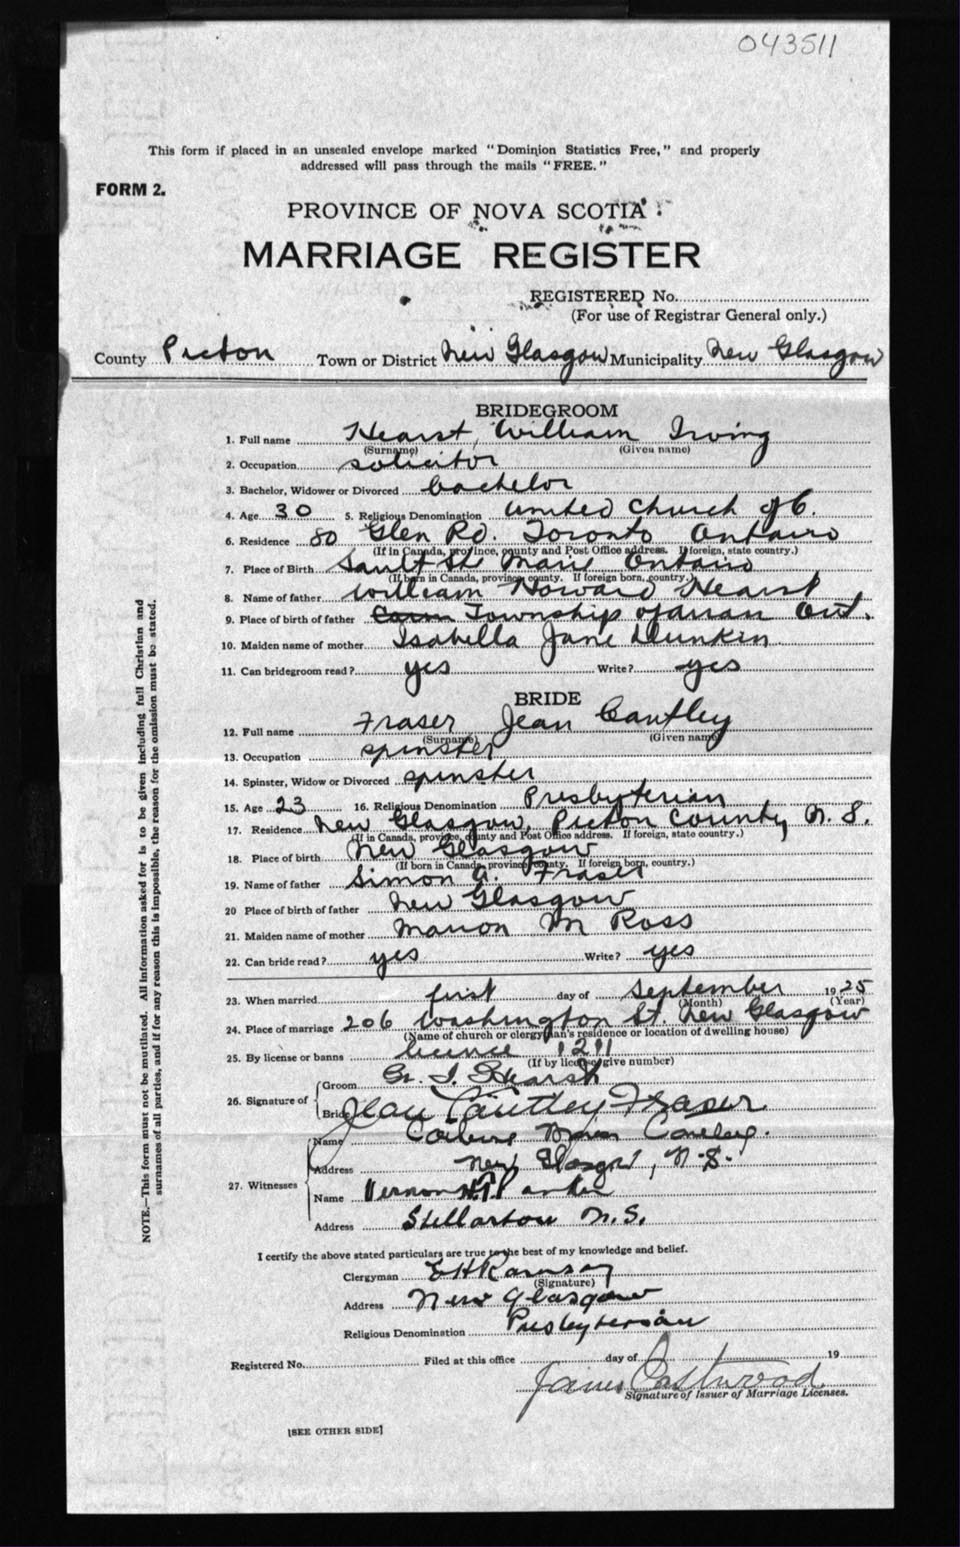 043511
This form if placed in an unsealed envelope marked "Dominion Statistics Free," and properly
addressed will pass through the mails "FREE."
FORM 2.
PROVINCE OF NOVA SCOTIA
MARRIAGE REGISTER
REGISTERED No.
(For use of Registrar General only.)
County Pictou Town or District New Glasgow Municipality New Glasgow
BRIDEGROOM
1. Full name Hearst, William Irving
(Surname) (Given name)
2. Occupation solicitor
3. Bachelor, Widower or Divorced bachelor
4. Age 30 5. Religious Denomination United Church of C.
6. Residence 80 Glen Rd. Toronto Ontario
(If in Canada, province, county and Post Office address. If foreign, state country.)
7. Place of Birth Sault Ste Marie Ontario
(If born in Canada, province, county. If foreign born, country.)
8. Name of father William Howard Hearst
9. Place of birth of father Township of Arran Ont.
10. Maiden name of mother Isabella Jane Dunkin
11. Can bridegroom read? yes Write? yes
BRIDE
12. Full name Fraser Jean Cantley
(Surname) (Given name)
13. Occupation spinster
14. Spinster, Widow or Divorced spinster
15. Age 23 16. Religious Denomination Presbyterian
17. Residence New Glasgow, Pictou County N. S.
(If in Canada, province, county and Post Office address. If foreign, state country.)
18. Place of birth New Glasgow
(If born in Canada, province, county. If foreign born, country.)
19. Name of father Simon A. Fraser
20 Place of birth of father New Glasgow
21. Maiden name of mother Marion M Ross
22. Can bride read? yes Write? yes
23. When married first day of September 1925
(Month) (Year)
24. Place of marriage 206 Washington St. New Glasgow
(Name of church or clergyman's residence or location of dwelling house)
25. By license or banns licence 1211
(If by license give number)
26. Signature of Groom W. I. Hearst
Bride Jean Cantley Fraser
27. Witnesses Name Cantley.
Address New Glasgow, N.S.
Name Vernon H.T. Parker
Address Stellarton N.S.
I certify the above stated particulars are true to the best of my knowledge and belief.
Clergyman E H Ramsay
(Signature)
Address New Glasgow
Religious Denomination Presbyterian
Registered No. Filed at this office day of 19
James Eastwood
Signature of Issuer of Marriage Licenses.
[SEE OTHER SIDE]
NOTE.—This form must not be mutilated. All information asked for is to be given including full Christian and
surnames of all parties, and if for any reason this is impossible, the reason for the omission must be stated.